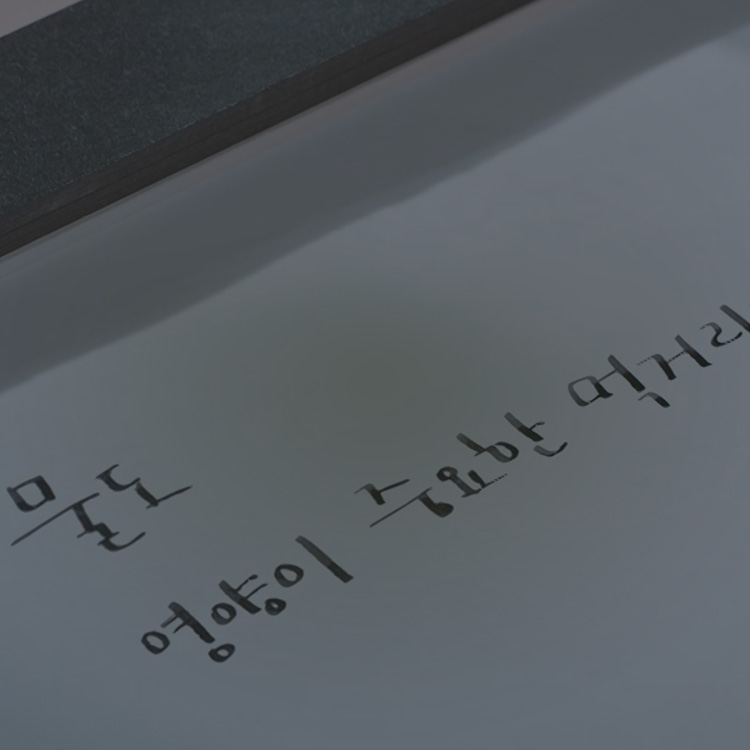 물도
영양이 중요한 먹거리